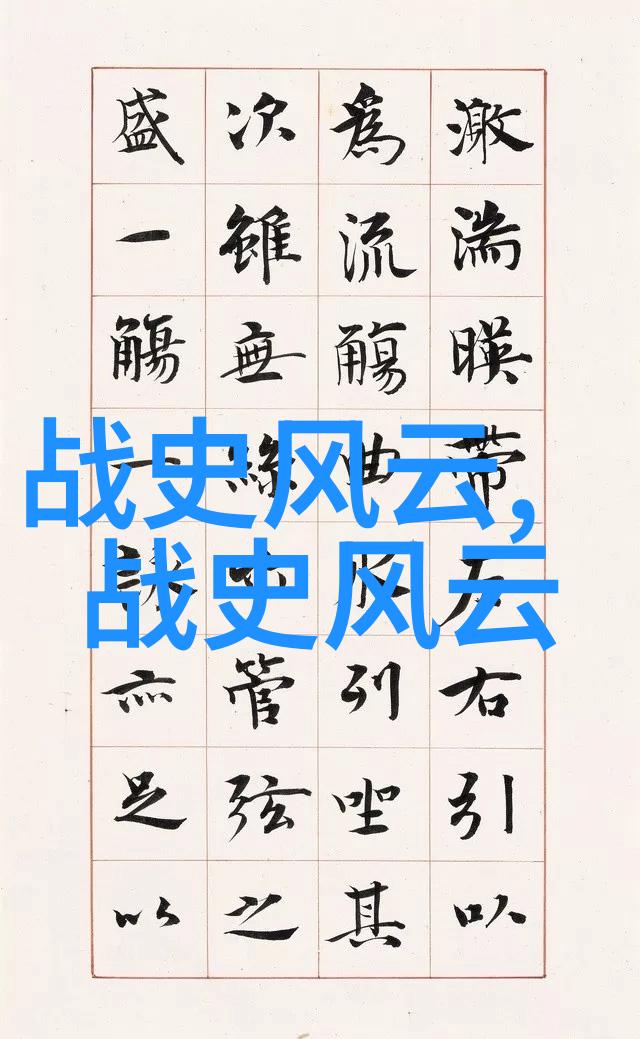 激湍暎帶左右引以
為流觴曲水列坐其
次雖無絲管弦之
盛一觴一詠亦足以
战史风云,
战史风云